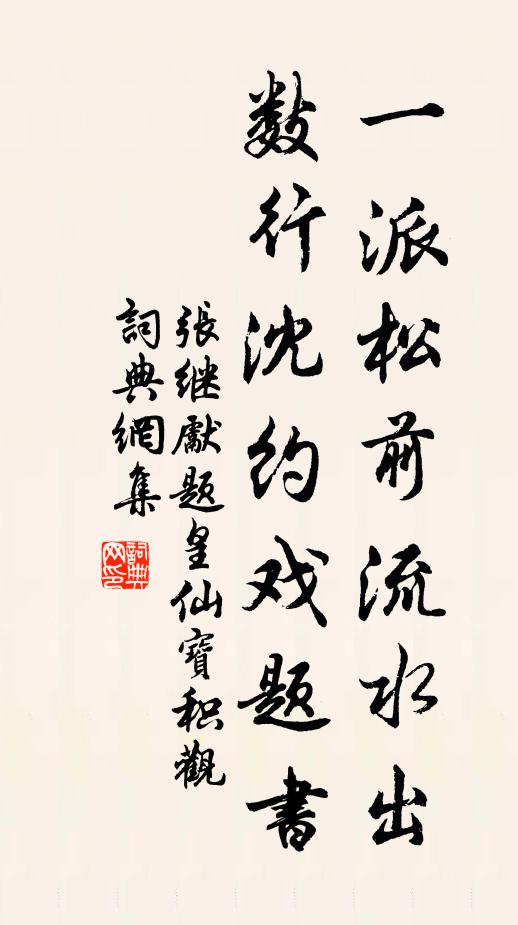 一派松前流水出
数行沈约戏题书
張继獻题皇仙寶积觀
詞典網集
詞典网印